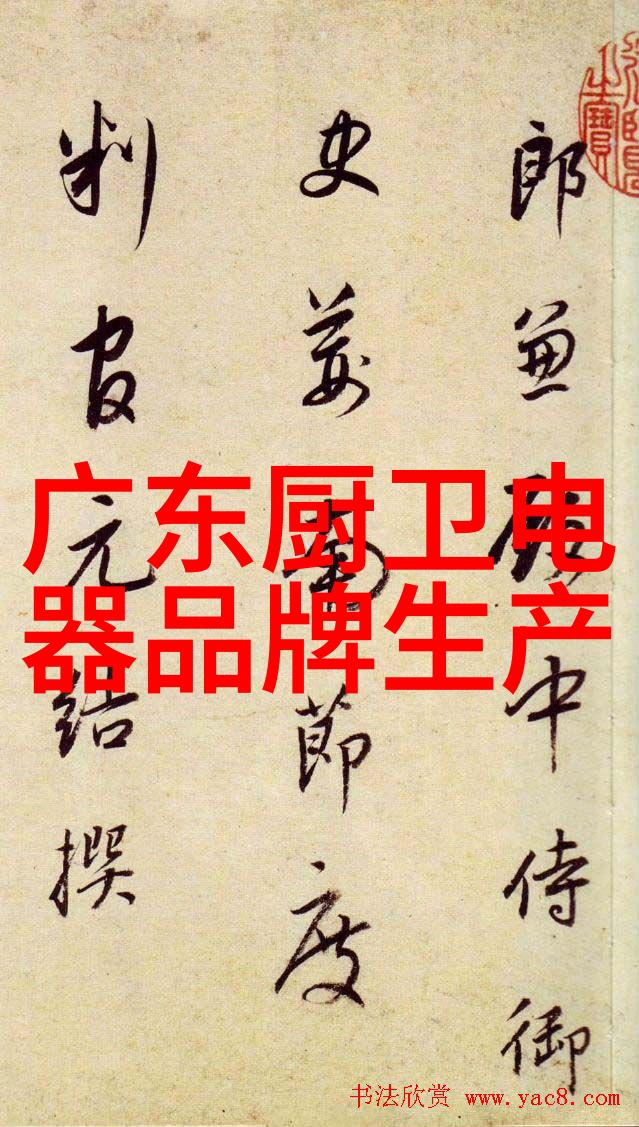 郎兼殿中侍御
史荊南節度
判官元結撰
广东厨卫电
器品牌生产
书法欣赏 www.yac8.com